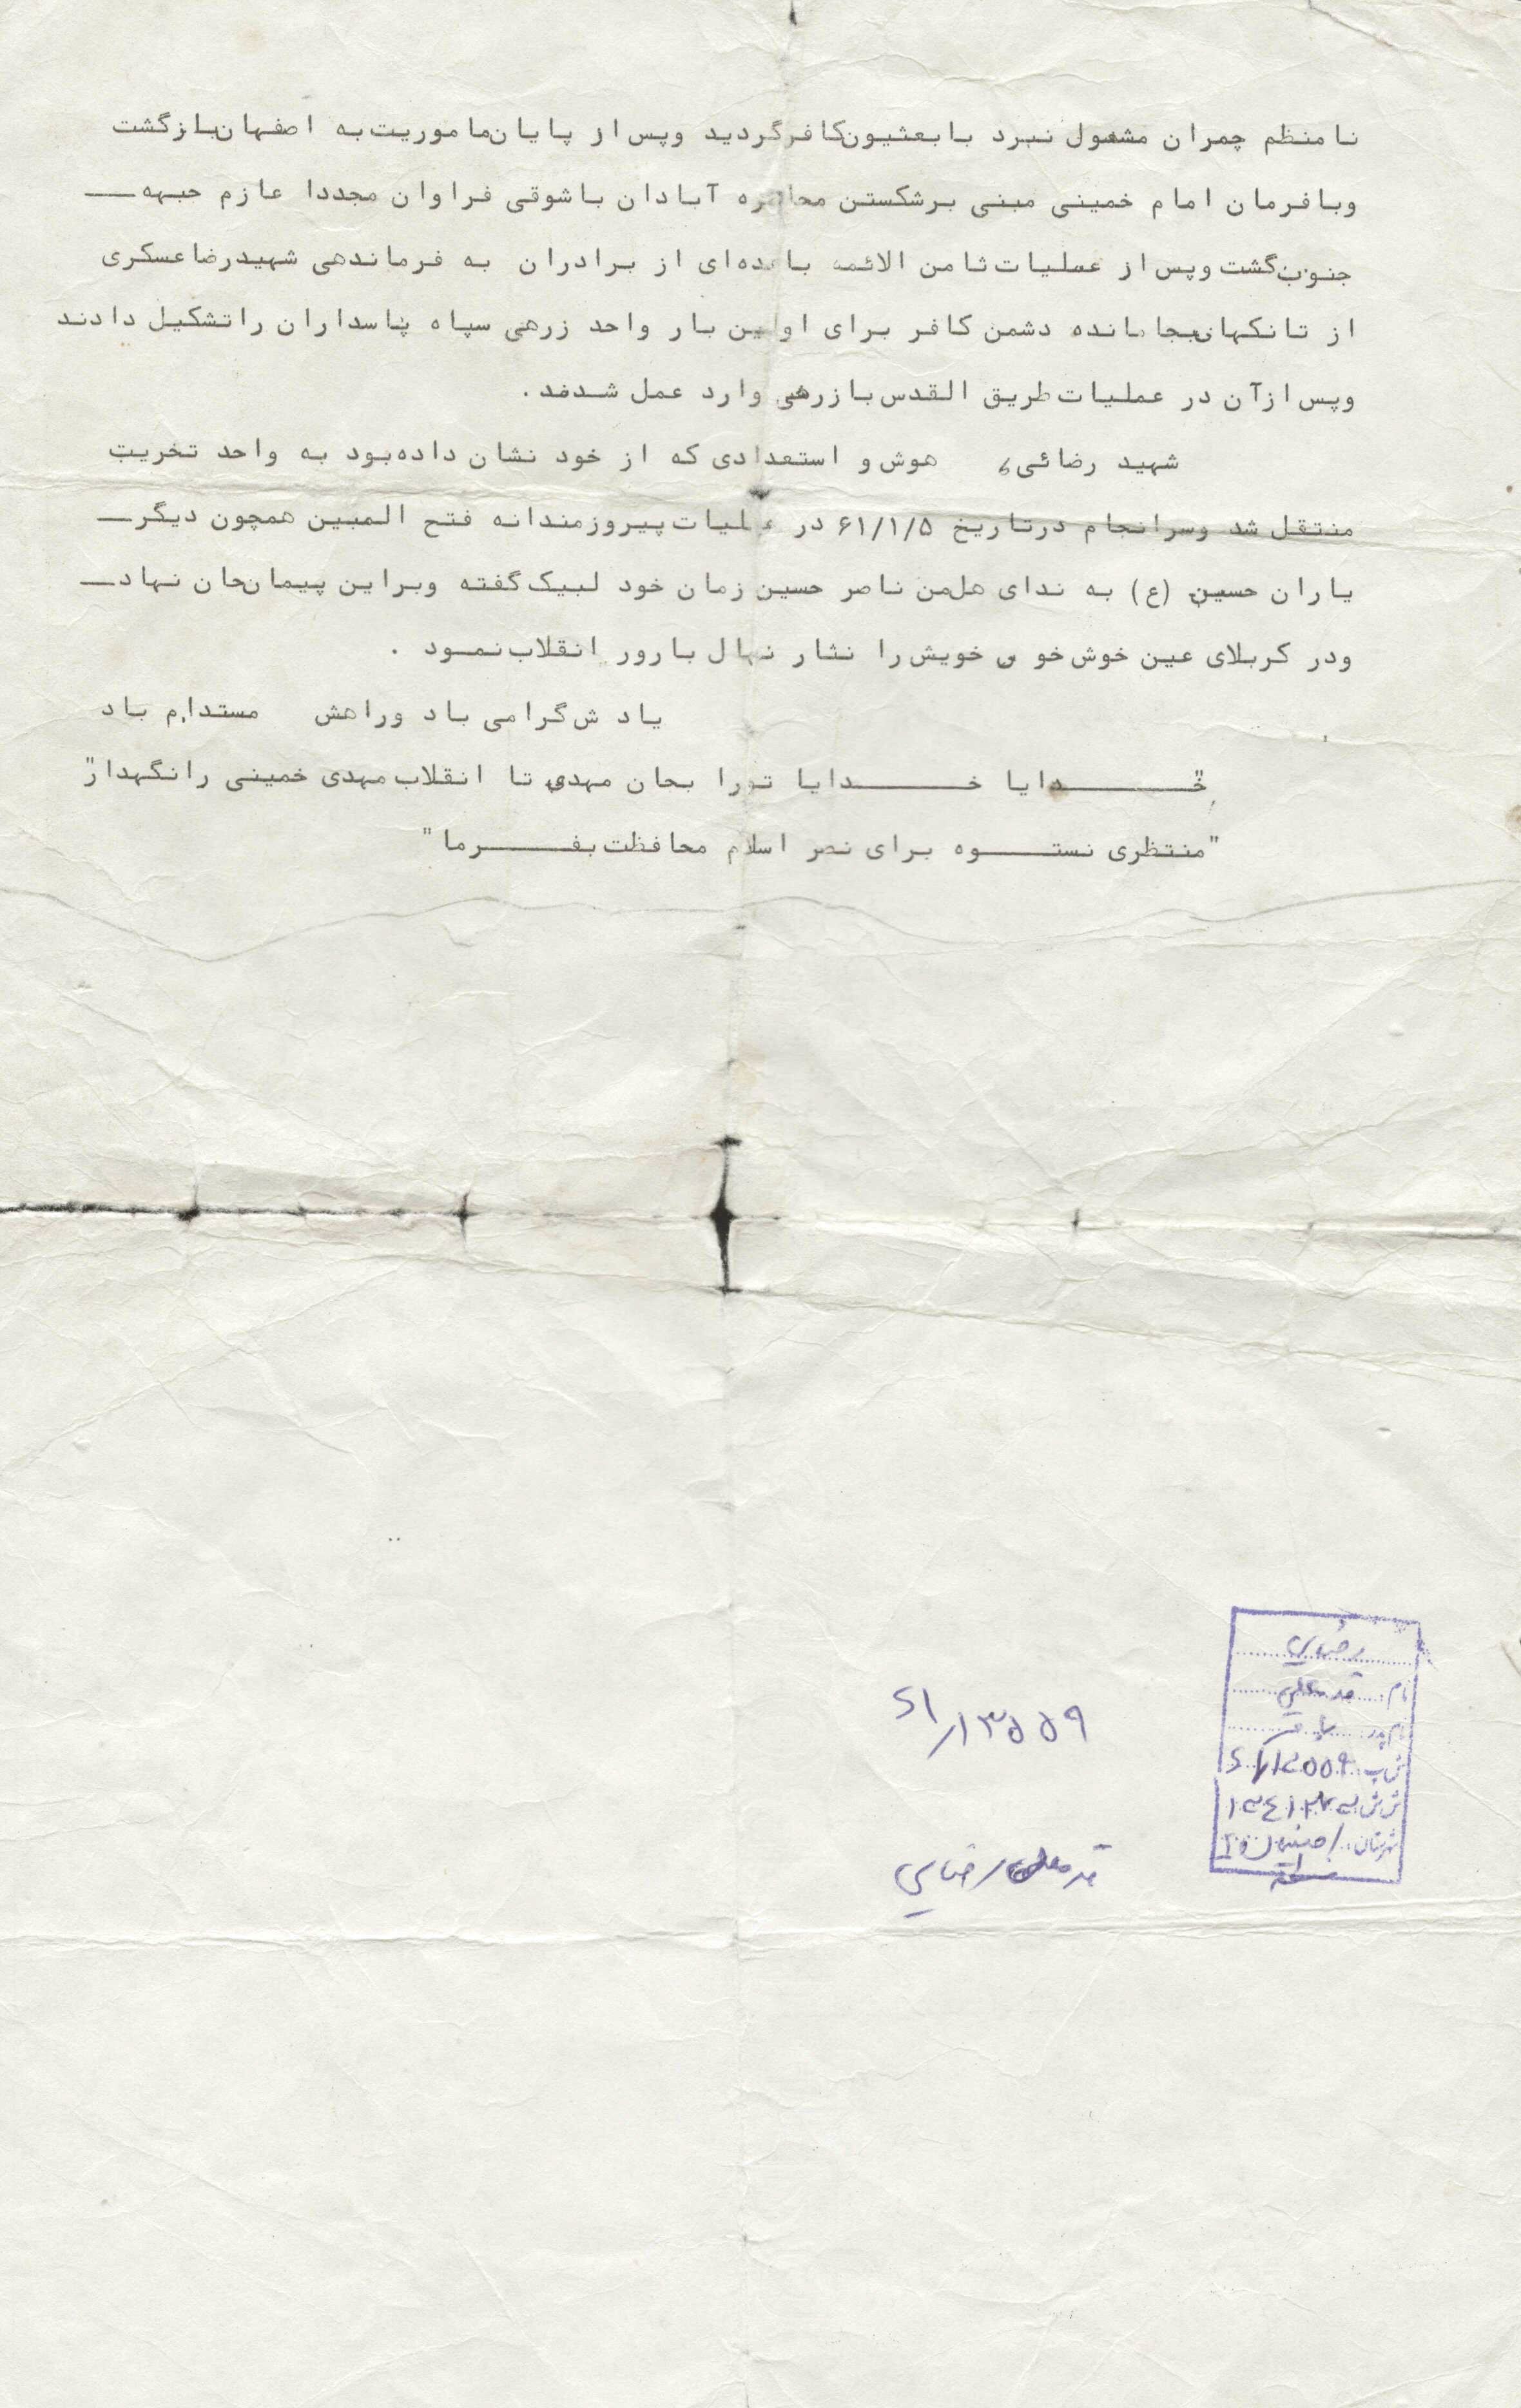 نامنظم چمران مشغول نبرد با بعثیون کافر گردید وپس از پایان ماموریت به اصفهان بازگشت
وبا فرمان امام خمینی مبنی برشکستن محاصره آبادان با شوقی فراوان مجددا عازم جبهه
جنوب گشت وپس از عملیات ثامن الائمه با عده‌ای از برادران به فرماندهی شهید رضا عسکری
از تانکهای بجا مانده دشمن کافر برای اولین بار واحد زرهی سپاه پاسداران را تشکیل دادند
وپس از آن در عملیات طریق القدس با زرهی وارد عمل شدند .
شهید رضائی هوش و استعدادی که از خود نشان داده بود به واحد تخریب
منتقل شد وسرانجام درتاریخ ۶۱/۱/۵ در عملیات پیروزمندانه فتح المبین همچون دیگر
یاران حسین (ع) به ندای هل من ناصر حسین زمان خود لبیک گفته وبراین پیمان جان نهاد
ودر کربلای عین خوش خون خویش را نثار نهال بارور انقلاب نمود .
یادش گرامی باد وراهش مستدام باد
"خدایا خدایا تورا بجان مهدی تا انقلاب مهدی خمینی را نگهدار"
"منتظری نستوه برای نصر اسلام محافظت بفرما"
رضایی
نام: قدمعلی
نام پدر:
ش ب:
ش ش:
شهرستان:
۶۱/۱۳۵۵۹
قدمعلی رضایی